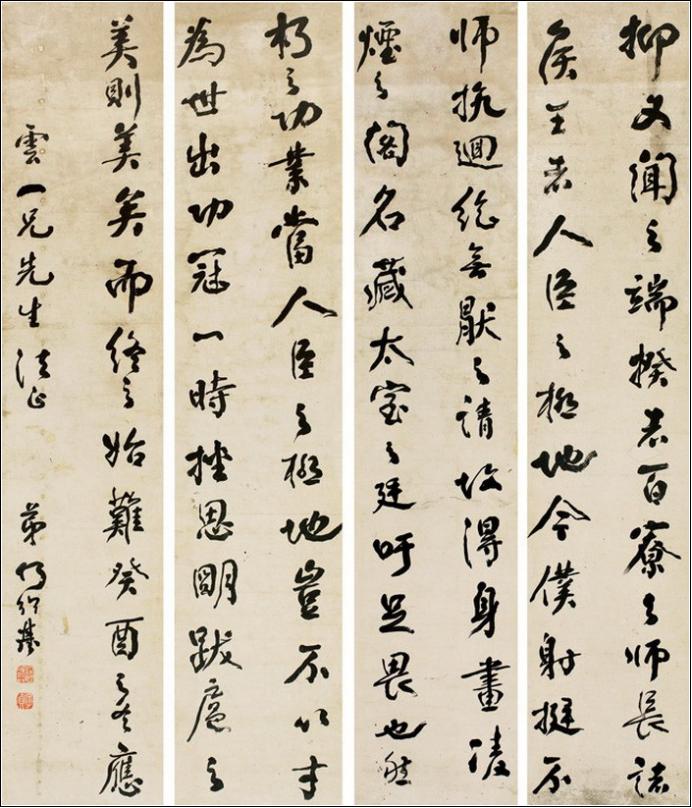 抑又聞之端揆者百寮之師長諸
侯王者人臣之極地今僕射挺不
師抗迴紇無厭之請故得身畫淩
煙之閣名藏太室之廷吁足畏也然
朽之功業當人臣之極地豈不以才
為世出功冠一時挫思明跋扈之
美則美矣而終之始難癸酉之冬應
雲一兄先生法正 弟何紹基